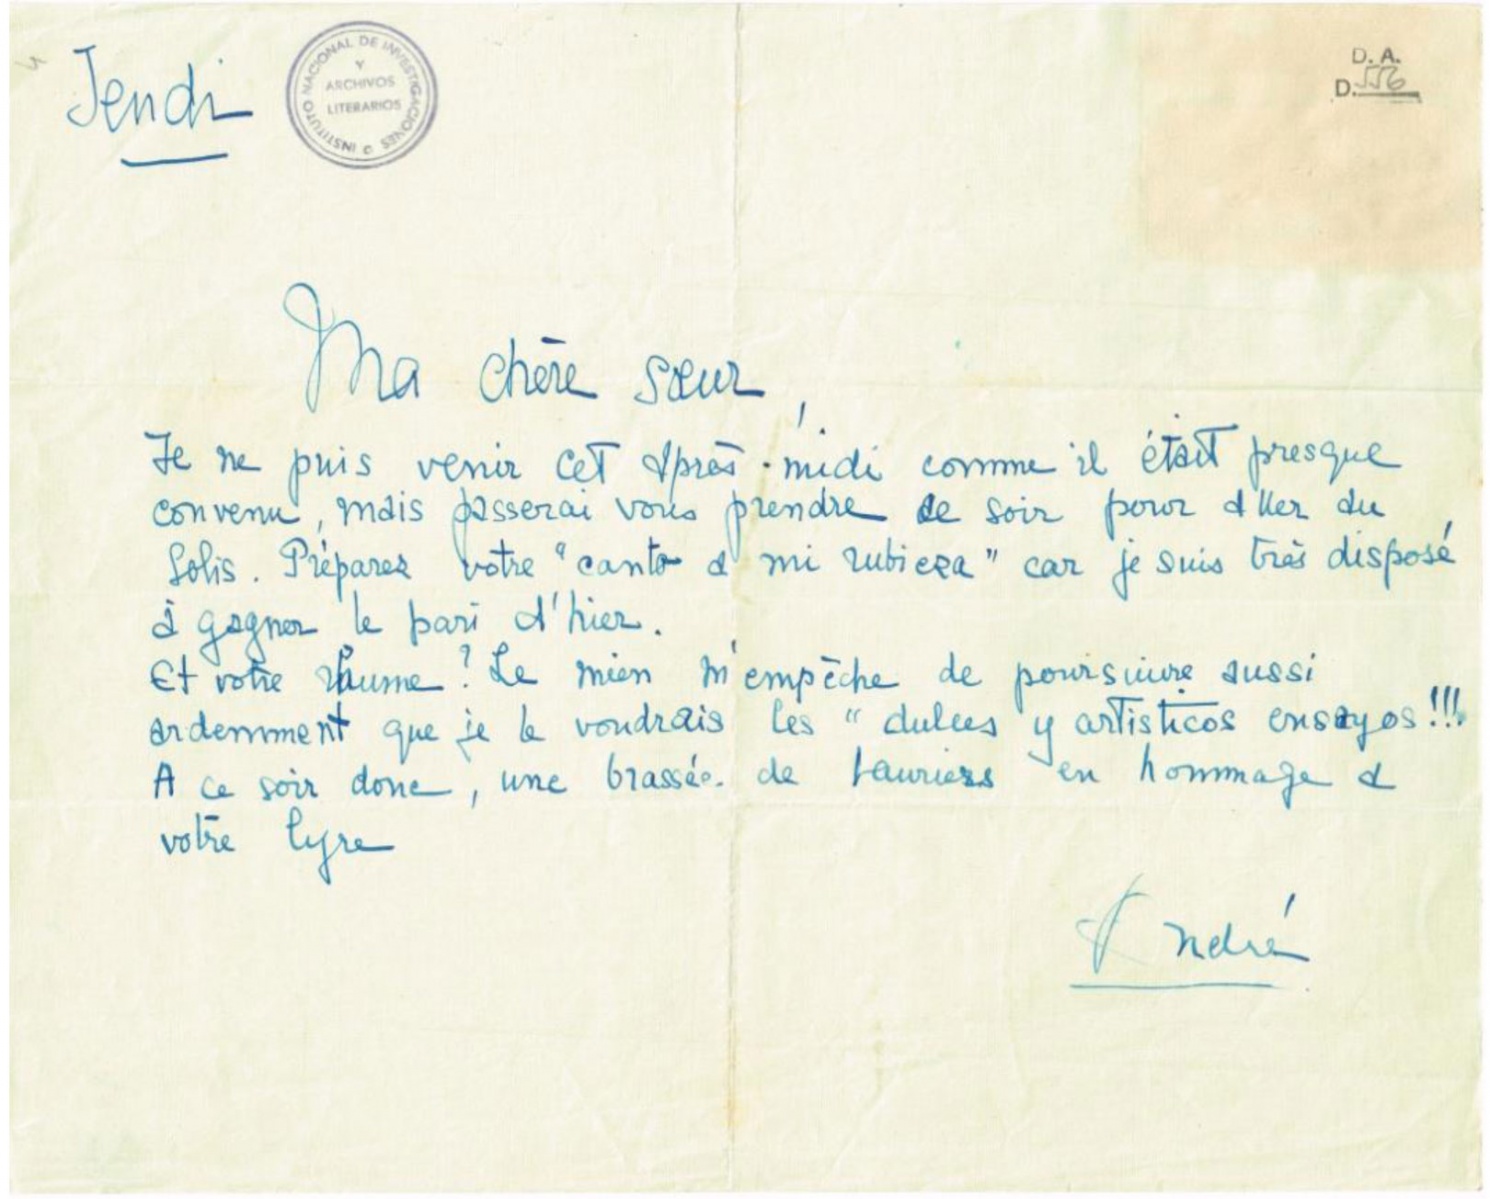 Jendi
INSTITUTO NACIONAL DE INVESTIGACIONES
Y
ARCHIVOS
LITERARIOS
D. A.
D. 556
Ma chère sœur,
Je ne puis venir cet après-midi comme il était presque
convenu, mais passerai vous prendre ce soir pour aller au
Solis. Préparez votre "canto a mi rubieza" car je suis très disposé
à gagner le pari d'hier.
Et votre rhume? Le mien m'empêche de poursuivre aussi
ardemment que je le voudrais les "dulces y artisticos ensayos!!!
A ce soir donc, une brassée de lauriers en hommage a
votre lyre
André